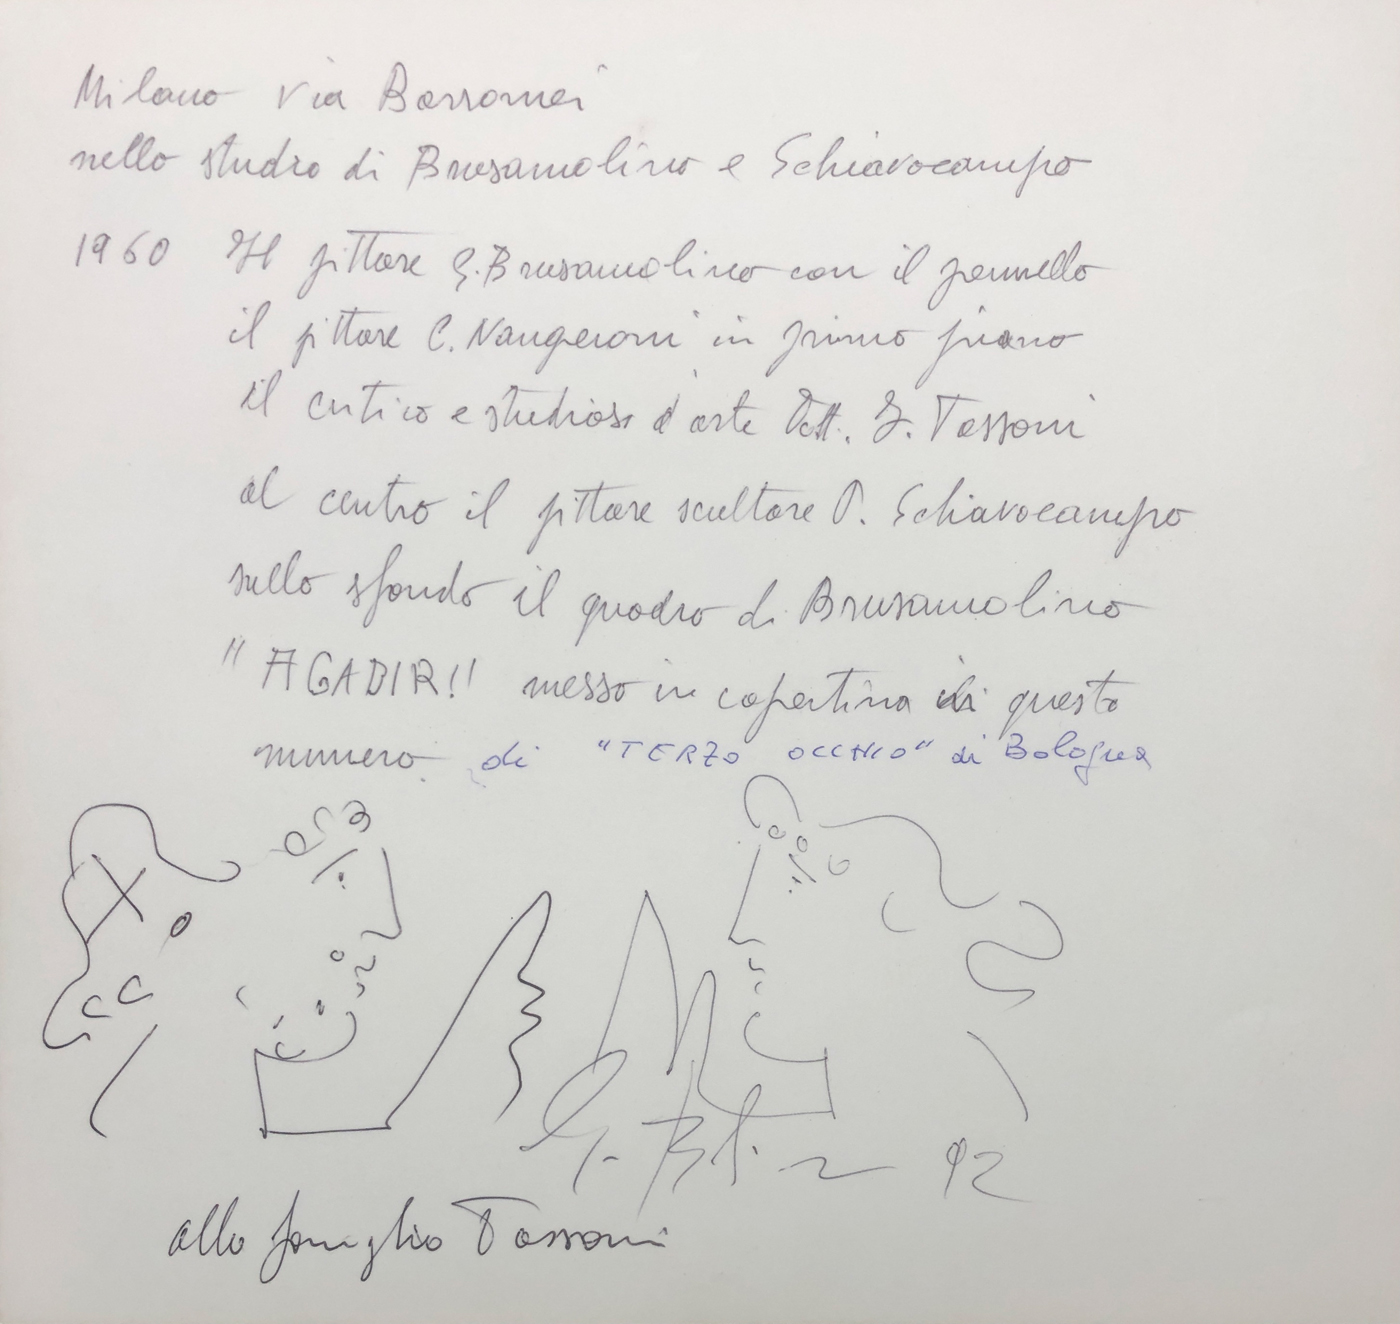 Milano via Borromei
nello studio di Brusamolino e Schiavocampo
1960 Il pittore G. Brusamolino con il pennello
il pittore C. Nangeroni in primo piano
il critico e studioso d'arte Dott. G. Tassoni
al centro il pittore scultore P. Schiavocampo
sullo sfondo il quadro di Brusamolino
"AGADIR!! messo in copertina di questo
numero. di "TERZO OCCHIO" di Bologna
92
alla famiglia Tassoni